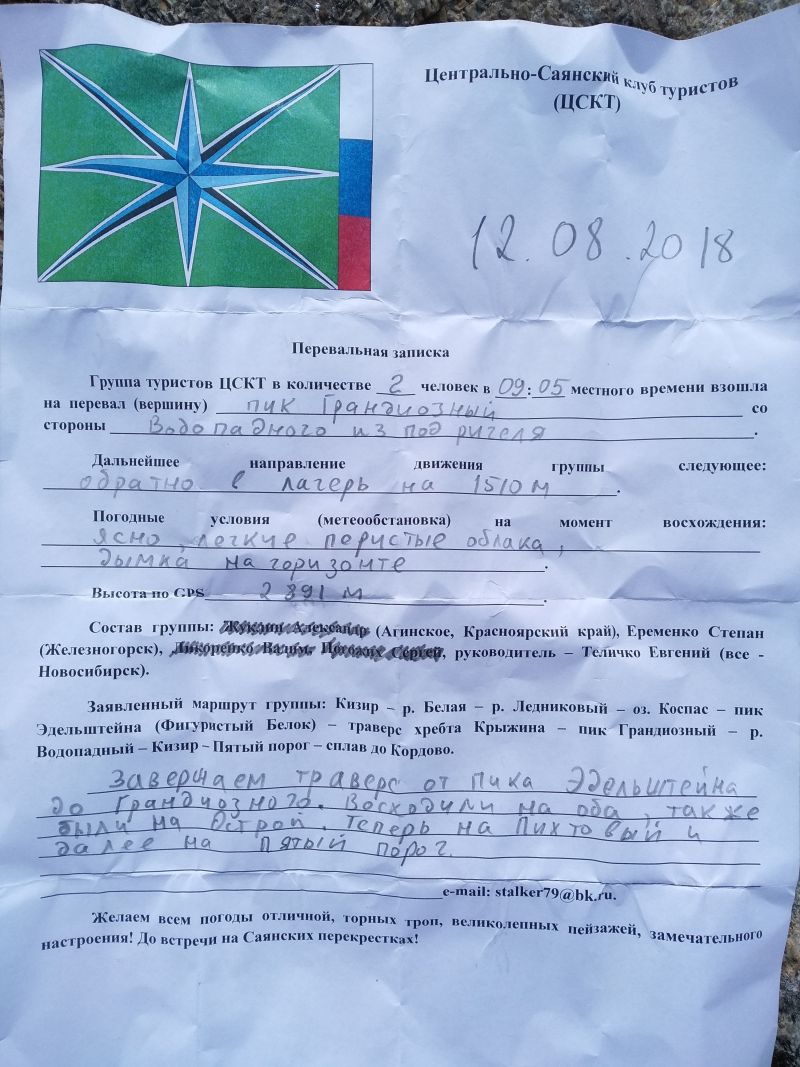 Центрально-Саянский клуб туристов
(ЦСКТ)
12.08.2018
Перевальная записка
Группа туристов ЦСКТ в количестве 2 человек в 09:05 местного времени взошла
на перевал (вершину) пик Грандиозный со
стороны Водопадного из под ригеля.
Дальнейшее направление движения группы следующее:
обратно в лагерь на 1510 м.
Погодные условия (метеообстановка) на момент восхождения:
ясно, легкие перистые облака,
дымка на горизонте.
Высота по GPS 2891 м.
Состав группы: Александр (Агинское, Красноярский край), Еременко Степан
(Железногорск), Вадим, Сергей, руководитель – Теличко Евгений (все -
Новосибирск).
Заявленный маршрут группы: Кизир – р. Белая – р. Ледниковый – оз. Коспас – пик
Эдельштейна (Фигуристый Белок) – траверс хребта Крыжина – пик Грандиозный – р.
Водопадный – Кизир – Пятый порог – сплав до Кордово.
Завершаем траверс от пика Эдельштейна
до Грандиозного. Восходили на оба, также
были на Острой. Теперь на Пихтовый и
далее на пятый порог.
e-mail: stalker79@bk.ru.
Желаем всем погоды отличной, торных троп, великолепных пейзажей, замечательного
настроения! До встречи на Саянских перекрестках!